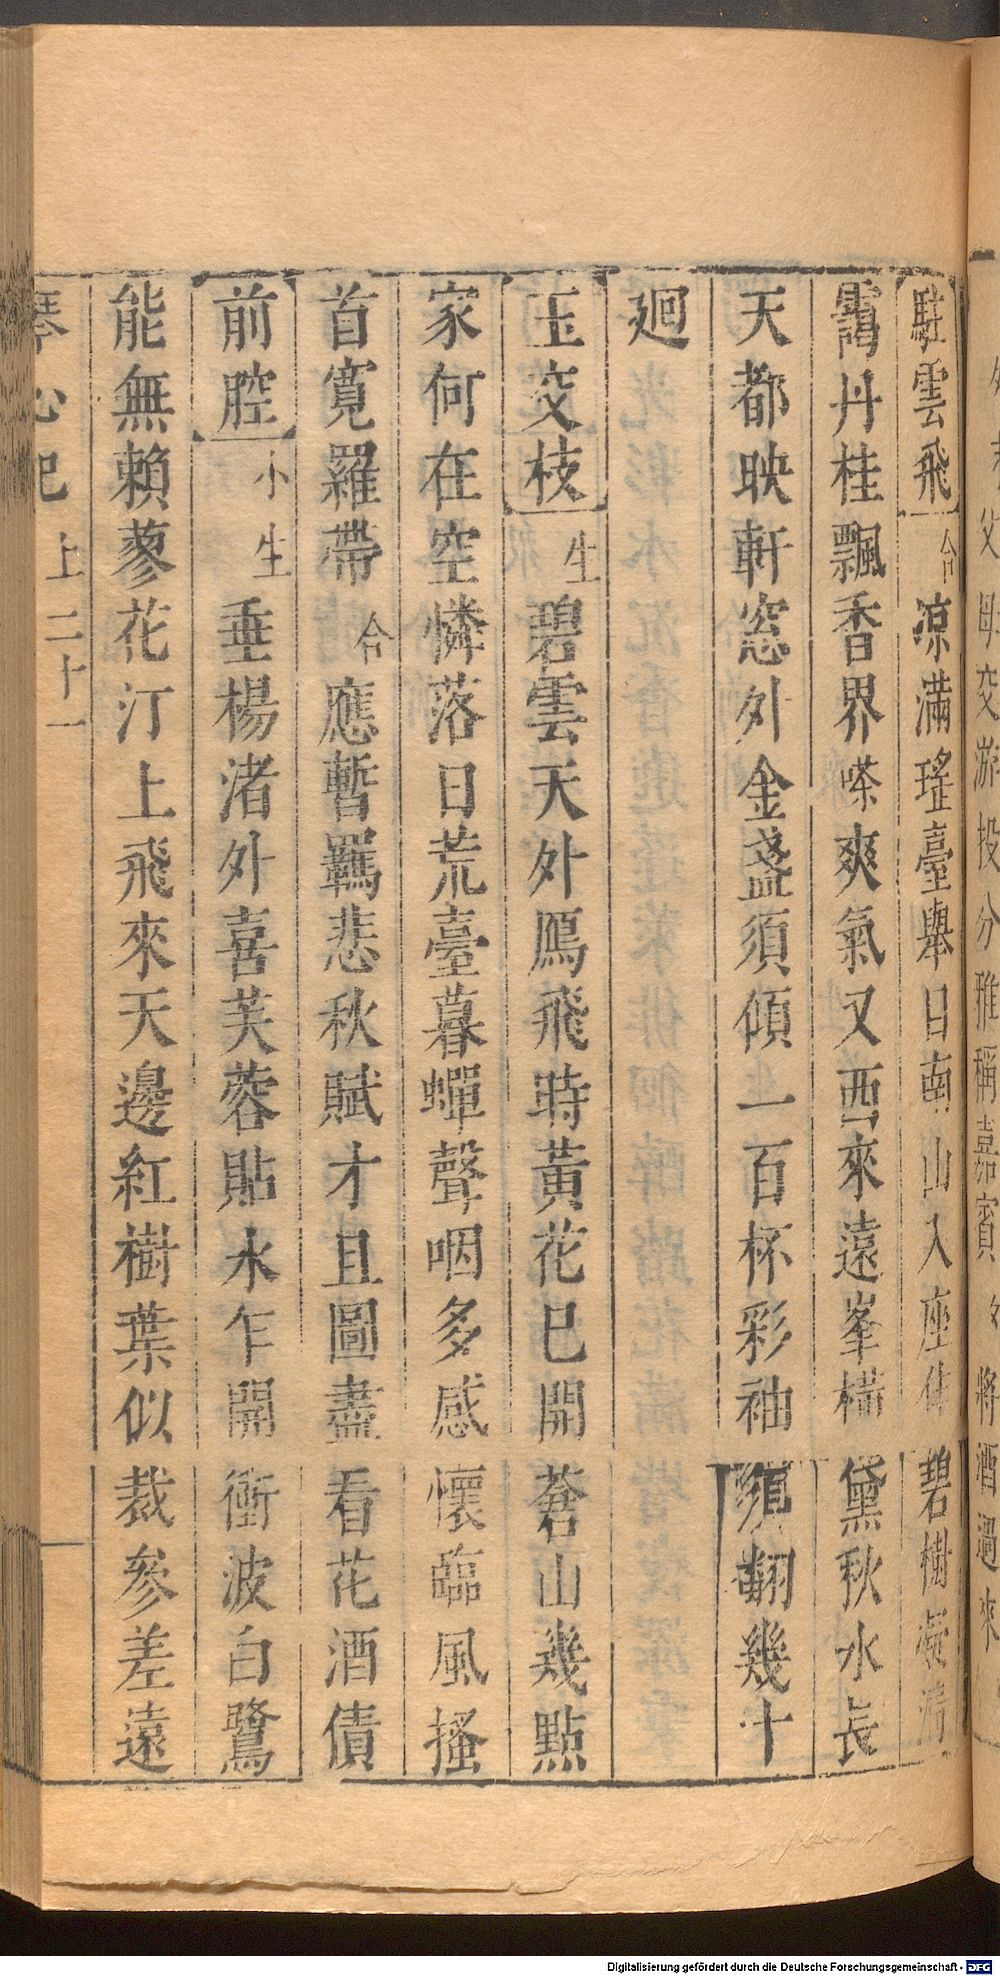 父母交游投分雅稱嘉賓 將酒過來
駐雲飛 合 凉滿瑤臺舉目南山入座佳碧樹凝清
靄丹桂飄香界嗏爽氣又西來遠峯橫黛秋水長
天都映軒窓外金盞須傾一百杯彩袖須翻幾十
廻
玉交枝 生 碧雲天外鴈飛時黃花已開蒼山幾點
家何在空憐落日荒臺暮蟬聲咽多感懷臨風搔
首寬羅帶 合 應暫羈悲秋賦才且圖盡看花酒債
前腔 小生 垂楊渚外喜芙蓉貼水乍開衝波白鷺
能無賴蓼花汀上飛來天邊紅樹葉似裁參差遠
琴心記 上 二十一
Digitalisierung gefördert durch die Deutsche Forschungsgemeinschaft - DFG